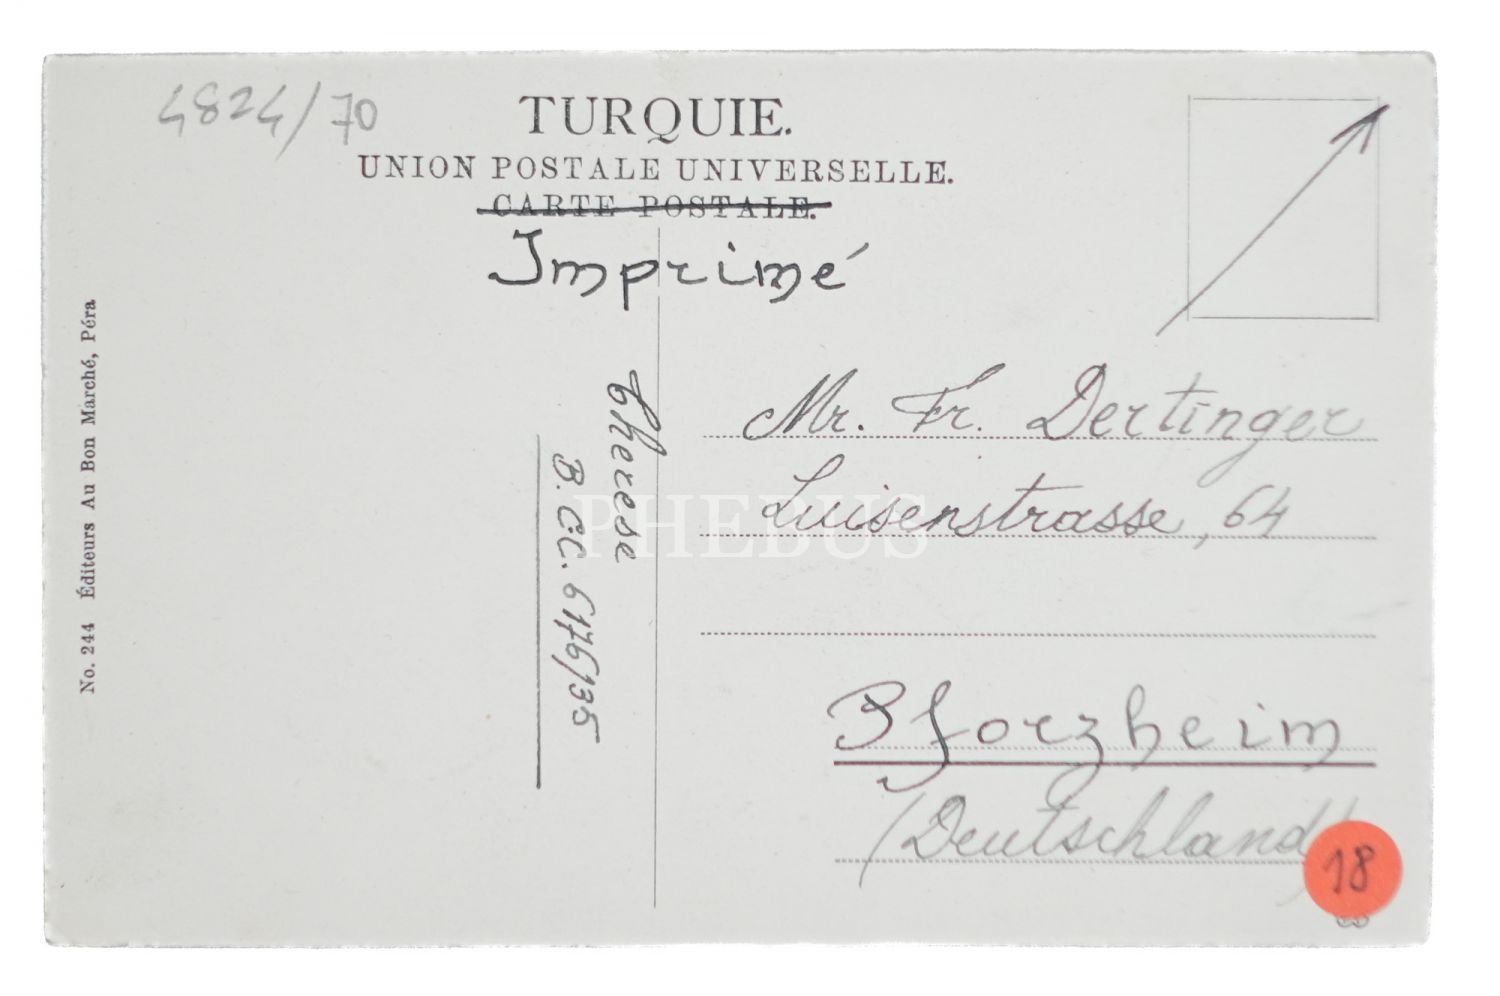 4824/70
TURQUIE.
UNION POSTALE UNIVERSELLE.
CARTE POSTALE.
Imprimé
No. 244 Éditeurs Au Bon Marché, Péra
Therese
B. CC. 6176/35
Mr. Fr. Dertinger
Luisenstrasse, 64
Pforzheim
(Deutschland)
18
PHEBUS